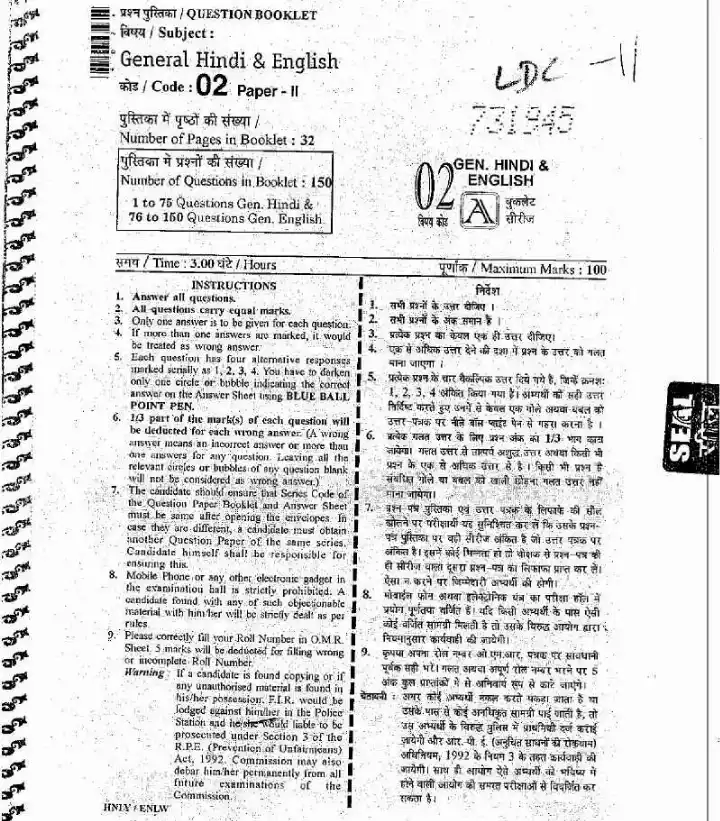 प्रश्न पुस्तिका / QUESTION BOOKLET
विषय / Subject :
General Hindi & English
कोड / Code : 02 Paper - II
पुस्तिका में पृष्ठों की संख्या /
Number of Pages in Booklet : 32
पुस्तिका में प्रश्नों की संख्या /
Number of Questions in Booklet : 150
1 to 75 Questions Gen. Hindi &
76 to 150 Questions Gen. English
LDC -11
731945
02 GEN. HINDI &
ENGLISH
विषय कोड A बुकलेट
सीरीज
समय / Time : 3.00 घंटे / Hours
पूर्णांक / Maximum Marks : 100
INSTRUCTIONS
1. Answer all questions.
2. All questions carry equal marks.
3. Only one answer is to be given for each question.
4. If more than one answers are marked, it would
be treated as wrong answer.
5. Each question has four alternative responses
marked serially as 1, 2, 3, 4. You have to darken
only one circle or bubble indicating the correct
answer on the Answer Sheet using BLUE BALL
POINT PEN.
6. 1/3 part of the mark(s) of each question will
be deducted for each wrong answer. (A wrong
answer means an incorrect answer or more than
one answers for any question. Leaving all the
relevant circles or bubbles of any question blank
will not be considered as wrong answer.)
7. The candidate should ensure that Series Code of
the Question Paper Booklet and Answer Sheet
must be same after opening the envelopes. In
case they are different, a candidate must obtain
another Question Paper of the same series.
Candidate himself shall be responsible for
ensuring this.
8. Mobile Phone or any other electronic gadget in
the examination hall is strictly prohibited. A
candidate found with any of such objectionable
material with him/her will be strictly dealt as per
rules.
9. Please correctly fill your Roll Number in O.M.R.
Sheet. 5 marks will be deducted for filling wrong
or incomplete Roll Number.
Warning : If a candidate is found copying or if
any unauthorised material is found in
his/her possession, F.I.R. would be
lodged against him/her in the Police
Station and he/she would liable to be
prosecuted under Section 3 of the
R.P.E. (Prevention of Unfairmeans)
Act, 1992. Commission may also
debar him/her permanently from all
future examinations of the
Commission.
HNLV / ENLW
निर्देश
1. सभी प्रश्नों के उत्तर दीजिए ।
2. सभी प्रश्नों के अंक समान हैं ।
3. प्रत्येक प्रश्न का केवल एक ही उत्तर दीजिए।
4. एक से अधिक उत्तर देने की दशा में प्रश्न के उत्तर को गलत
माना जाएगा ।
5. प्रत्येक प्रश्न के चार वैकल्पिक उत्तर दिये गये हैं, जिन्हें क्रमशः
1, 2, 3, 4 अंकित किया गया है। अभ्यर्थी को सही उत्तर
निर्दिष्ट करते हुए उनमें से केवल एक गोले अथवा बबल को
उत्तर-पत्रक पर नीले बॉल प्वाइंट पेन से गहरा करना है ।
6. प्रत्येक गलत उत्तर के लिए प्रश्न अंक का 1/3 भाग काटा
जायेगा। गलत उत्तर से तात्पर्य अशुद्ध उत्तर अथवा किसी भी
प्रश्न के एक से अधिक उत्तर से है । किसी भी प्रश्न से
संबंधित गोले या बबल को खाली छोड़ना गलत उत्तर नहीं
माना जायेगा।
7. प्रश्न-पत्र पुस्तिका एवं उत्तर पत्रक के लिफाफे की सील
खोलने पर परीक्षार्थी यह सुनिश्चित कर लें कि उसके प्रश्न-
पत्र पुस्तिका पर वही सीरीज अंकित है जो उत्तर पत्रक पर
अंकित है। इसमें कोई भिन्नता हो तो वीक्षक से प्रश्न-पत्र की
ही सीरीज वाला दूसरा प्रश्न-पत्र का लिफाफा प्राप्त कर लें।
ऐसा न करने पर जिम्मेदारी अभ्यर्थी की होगी।
8. मोबाईल फोन अथवा इलेक्ट्रोनिक यंत्र का परीक्षा हॉल में
प्रयोग पूर्णतया वर्जित है। यदि किसी अभ्यर्थी के पास ऐसी
कोई वर्जित सामग्री मिलती है तो उसके विरुद्ध आयोग द्वारा
नियमानुसार कार्यवाही की जायेगी।
9. कृपया अपना रोल नम्बर ओ.एम.आर. पत्रक पर सावधानी
पूर्वक सही भरें। गलत अथवा अपूर्ण रोल नम्बर भरने पर 5
अंक कुल प्राप्तांकों में से अनिवार्य रूप से काटे जाएंगे।
चेतावनी : अगर कोई अभ्यर्थी नकल करते पकड़ा जाता है या
उसके पास से कोई अनधिकृत सामग्री पाई जाती है, तो
उस अभ्यर्थी के विरुद्ध पुलिस में प्राथमिकी दर्ज कराई
जायेगी और आर. पी. ई. (अनुचित साधनों की रोकथाम)
अधिनियम, 1992 के नियम 3 के तहत कार्यवाही की
जायेगी। साथ ही आयोग ऐसे अभ्यर्थी को भविष्य में
होने वाली आयोग की समस्त परीक्षाओं से विवर्जित कर
सकता है।
SEAL